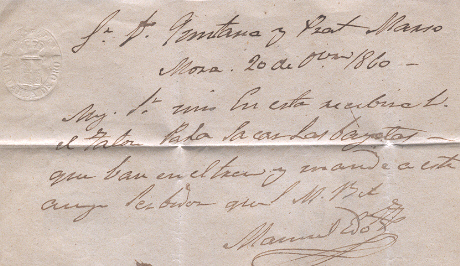 Sr. Dn. Quintana y Prat Manso
Mora. 20 de 1860 -
Muy Sr. mio En esta recibira V.
el Talon Para sacar las bayetas -
que ban en el tren y mande a este
su servidor que S. M. B.
Manuel